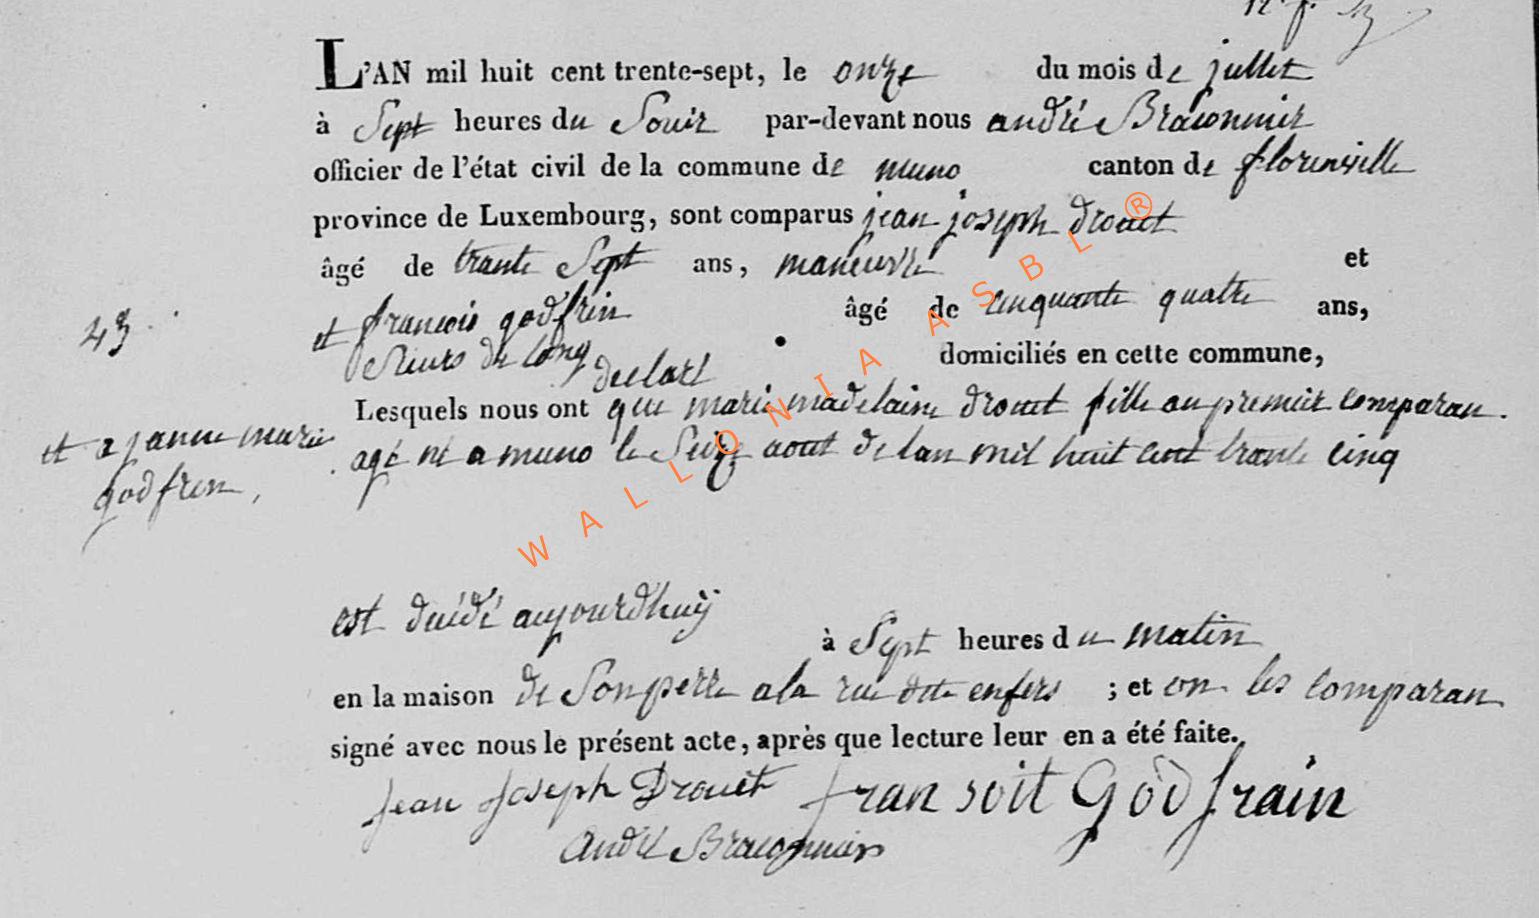 L'AN mil huit cent trente-sept, le onze du mois de jullet
à Sept heures du Souir par-devant nous andré Braconnier
officier de l'état civil de la commune de muno canton de florenville
province de Luxembourg, sont comparus jean joseph drouet
âgé de trante Sept ans, maneuvre et
et francois godfrin âgé de cinquante quatre ans,
43
Sieurs de long domiciliés en cette commune,
declaré
Lesquels nous ont que marie madelaine drouet fille au premier comparan.
et a janne marie
godfren,
agé né a muno le Seize aout de lan mil huit cent trante cinq
est décédé aujourdhuy
à Sept heures du matin
en la maison de Son perre a la rue dite enfers ; et on les comparan
signé avec nous le présent acte, après que lecture leur en a été faite.
Jean Joseph Drouet fran soit Godfrain
André Braconnier
WALLONIA ASBL ®